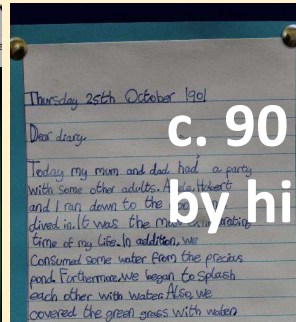 Thursday 25th October 1901
Dear diary,
c. 90
Today my mum and dad had a party
with some other adults. Hubert
by hi
and I ran down to the
dived in. It was the most
time of my life. In addition, we
consumed some water from the precious
pond. Furthermore, we began to splash
each other with water. Also, we
covered the green grass with water